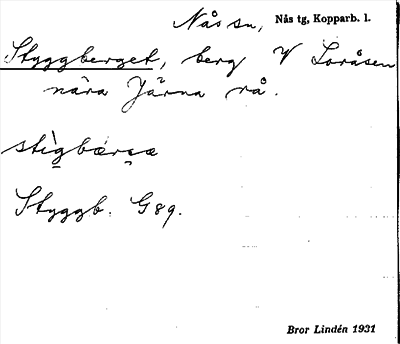 Nås sn, Nås tg, Kopparb. l.
Styggberget, berg V Loråsen
nära Järna rå.
stìg̯bæ̀rꞔæ
Styggb. G89.
Bror Lindén 1931